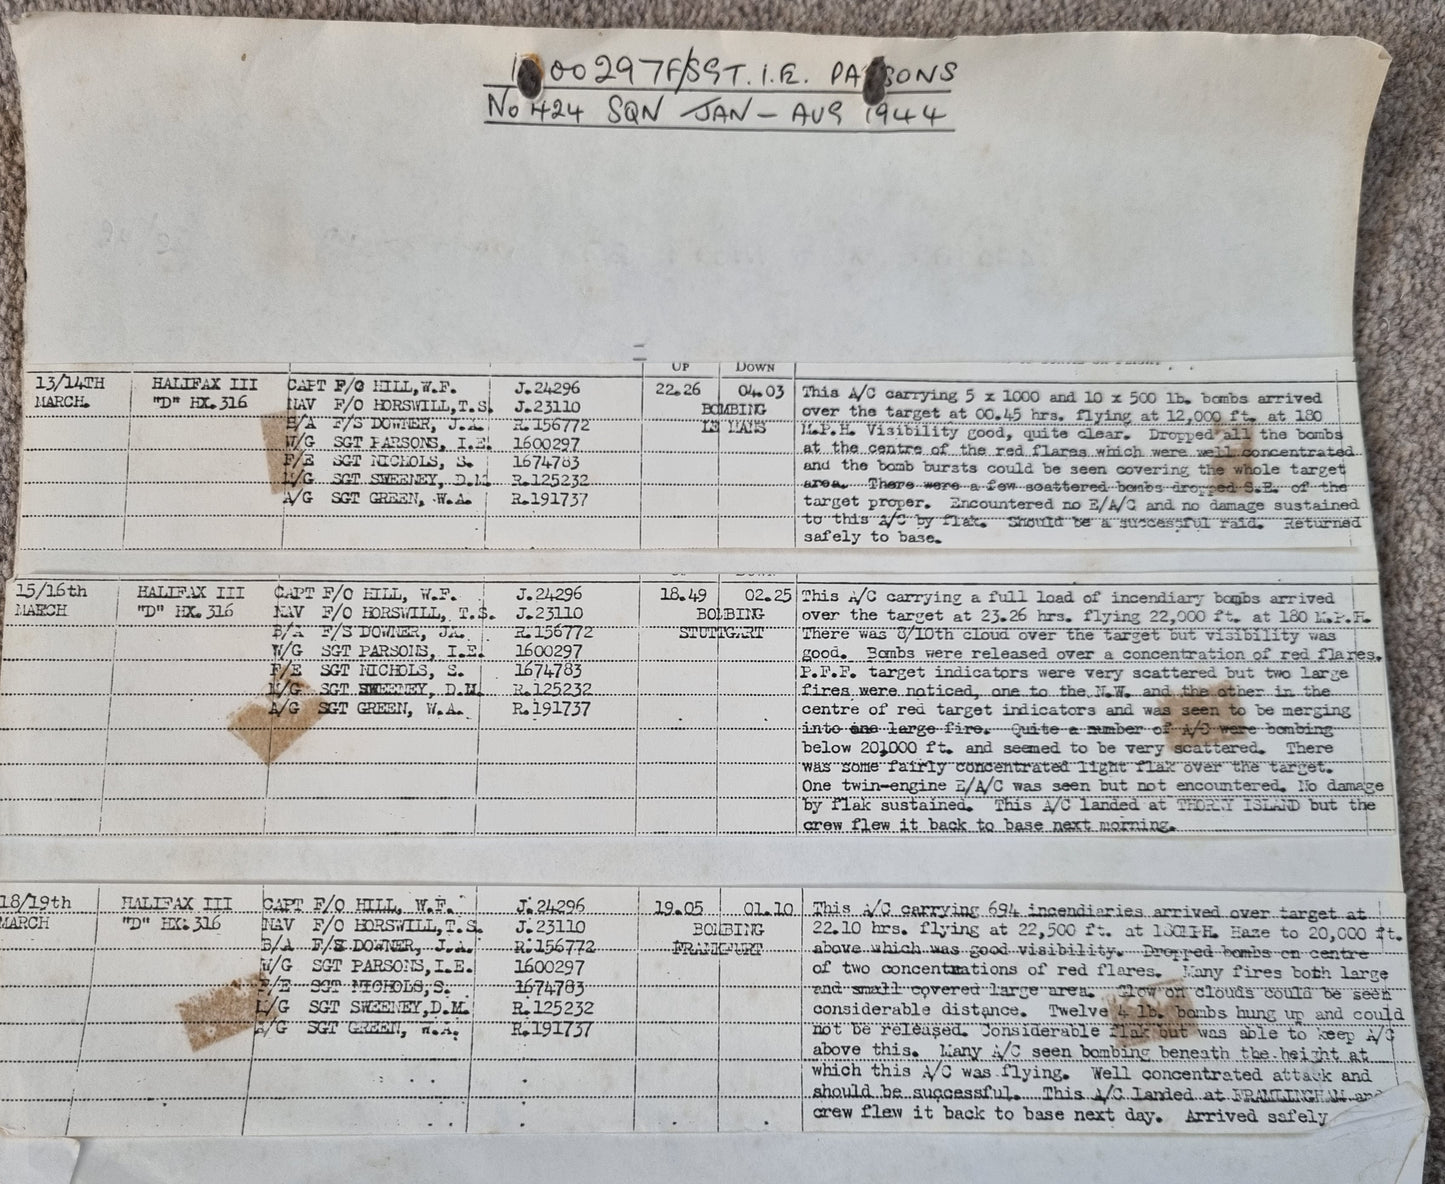 1600297 F/SGT. I.E. PARSONS
No 424 SQN JAN - AUG 1944
UP DOWN
13/14TH HALIFAX III CAPT F/O HILL,W.F. J.24296 22.26 04.03 This A/C carrying 5 x 1000 and 10 x 500 lb. bombs arrived
MARCH. "D" HX.316 NAV F/O HORSWILL,T.S. J.23110 BOMBING over the target at 00.45 hrs. flying at 12,000 ft. at 180
B/A F/S DOWNER, J.A. R.156772 LE MANS M.P.H. Visibility good, quite clear. Dropped all the bombs
W/G SGT PARSONS, I.E. 1600297 at the centre of the red flares which were well concentrated
F/E SGT NICHOLS, S. 1674783 and the bomb bursts could be seen covering the whole target
M/G SGT SWEENEY, D.M. R.125232 area. There were a few scattered bombs dropped S.E. of the
A/G SGT GREEN, W.A. R.191737 target proper. Encountered no E/A/C and no damage sustained
to this A/C by flak. Should be a successful raid. Returned
safely to base.
DOWN
15/16th HALIFAX III CAPT F/O HILL, W.F. J.24296 18.49 02.25 This A/C carrying a full load of incendiary bombs arrived
MARCH "D" HX.316 NAV F/O HORSWILL, T.S. J.23110 BOMBING over the target at 23.26 hrs. flying 22,000 ft. at 180 M.P.H.
B/A F/S DOWNER, JA. R.156772 STUTTGART There was 8/10th cloud over the target but visibility was
W/G SGT PARSONS, I.E. 1600297 good. Bombs were released over a concentration of red flares.
F/E SGT NICHOLS, S. 1674783 P.F.F. target indicators were very scattered but two large
M/G SGT SWEENEY, D.M. R.125232 fires were noticed, one to the N.W. and the other in the
A/G SGT GREEN, W.A. R.191737 centre of red target indicators and was seen to be merging
into one large fire. Quite a number of A/C were bombing
below 20,000 ft. and seemed to be very scattered. There
was some fairly concentrated light flak over the target.
One twin-engine E/A/C was seen but not encountered. No damage
by flak sustained. This A/C landed at THORNY ISLAND but the
crew flew it back to base next morning.
18/19th HALIFAX III CAPT F/O HILL, W.F. J.24296 19.05 01.10 This A/C carrying 694 incendiaries arrived over target at
MARCH "D" HX.316 NAV F/O HORSWILL,T.S. J.23110 BOMBING 22.10 hrs. flying at 22,500 ft. at 180MPH. Haze to 20,000 ft.
B/A F/S DOWNER, J.A. R.156772 FRANKFURT above which was good visibility. Dropped bombs on centre
W/G SGT PARSONS,I.E. 1600297 of two concentrations of red flares. Many fires both large
F/E SGT NICHOLS,S. 1674783 and small covered large area. Glow on clouds could be seen
M/G SGT SWEENEY,D.M. R.125232 considerable distance. Twelve 4 lb. bombs hung up and could
A/G SGT GREEN, W.A. R.191737 not be released. Considerable flak but was able to keep A/C
above this. Many A/C seen bombing beneath the height at
which this A/C was flying. Well concentrated attack and
should be successful. This A/C landed at FRAMLINGHAM and
crew flew it back to base next day. Arrived safely